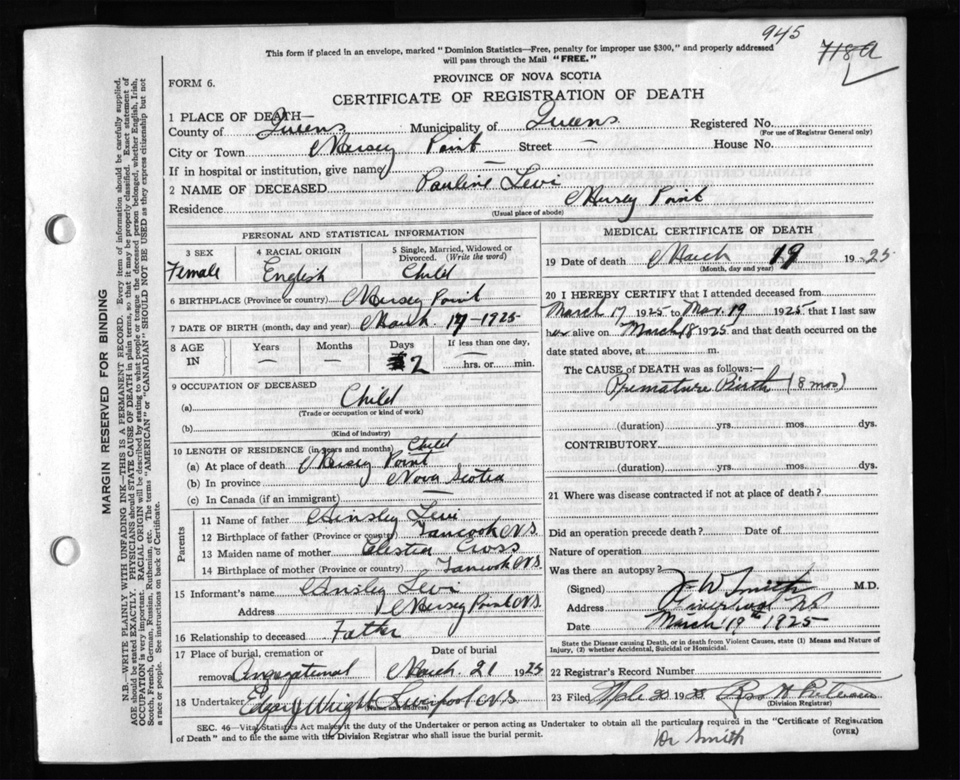 945
718a
This form if placed in an envelope, marked "Dominion Statistics—Free, penalty for improper use $300," and properly addressed
will pass through the Mail "FREE."
PROVINCE OF NOVA SCOTIA
FORM 6.
CERTIFICATE OF REGISTRATION OF DEATH
1 PLACE OF DEATH—
County of Queens Municipality of Queens Registered No.
(For use of Registrar General only)
City or Town Mersey Point Street — House No.
If in hospital or institution, give name —
2 NAME OF DECEASED Pauline Levi
Residence Mersey Point
(Usual place of abode)
PERSONAL AND STATISTICAL INFORMATION
3 SEX 4 RACIAL ORIGIN 5 Single, Married, Widowed or
Divorced. (Write the word)
Female English Child
6 BIRTHPLACE (Province or country) Mersey Point
7 DATE OF BIRTH (month, day and year) March 17-1925
8 AGE Years Months Days If less than one day,
IN — — 2 hrs. or min.
9 OCCUPATION OF DECEASED
(a) Child
(Trade or occupation or kind of work)
(b)
(Kind of industry)
10 LENGTH OF RESIDENCE (in years and months) Child
(a) At place of death Mersey Point
(b) In province Nova Scotia
(c) In Canada (if an immigrant) —
Parents
11 Name of father Ainsley Levi
12 Birthplace of father (Province or country) Tancook N.S.
13 Maiden name of mother Celestia Cross
14 Birthplace of mother (Province or country) Tancook N.S.
15 Informant's name Ainsley Levi
Address Mersey Point N.S.
16 Relationship to deceased Father
17 Place of burial, cremation or Date of burial
removal March 21 1925
18 Undertaker Edgar Wright Liverpool N.S.
MEDICAL CERTIFICATE OF DEATH
19 Date of death March 19 1925
(Month, day and year)
20 I HEREBY CERTIFY that I attended deceased from
March 17 1925 to Mar. 19 1925 that I last saw
her alive on March 18 1925 and that death occurred on the
date stated above, at m.
The CAUSE OF DEATH was as follows:—
Premature Birth (8 mos)
(duration) yrs. mos. dys.
CONTRIBUTORY
(duration) yrs. mos. dys.
21 Where was disease contracted if not at place of death?
Did an operation precede death? Date of
Nature of operation
Was there an autopsy?
(Signed) J W Smith M.D.
Address Liverpool NS
Date March 19th 1925
State the Disease causing Death, or in death from Violent Causes, state (1) Means and Nature of
Injury, (2) whether Accidental, Suicidal or Homicidal.
22 Registrar's Record Number
23 Filed 20 1925
(Division Registrar)
SEC. 46—Vital Statistics Act makes it the duty of the Undertaker or person acting as Undertaker to obtain all the particulars required in the "Certificate of Registration
of Death" and to file the same with the Division Registrar who shall issue the burial permit.
(OVER)
Dr Smith
MARGIN RESERVED FOR BINDING
N.B.—WRITE PLAINLY WITH UNFADING INK—THIS IS A PERMANENT RECORD. Every item of information should be carefully supplied.
AGE should be stated EXACTLY. PHYSICIANS should STATE CAUSE OF DEATH in plain terms, so that it may be properly classified. Exact statement of
OCCUPATION is very important. RACIAL ORIGIN will be described by stating to what people or tongue the deceased person belonged, whether English, Irish,
Scotch, French, German, Russian, Ruthenian, etc. The terms "AMERICAN" or "CANADIAN" SHOULD NOT BE USED as they express citizenship but not
a race or people. See instructions on back of Certificate.